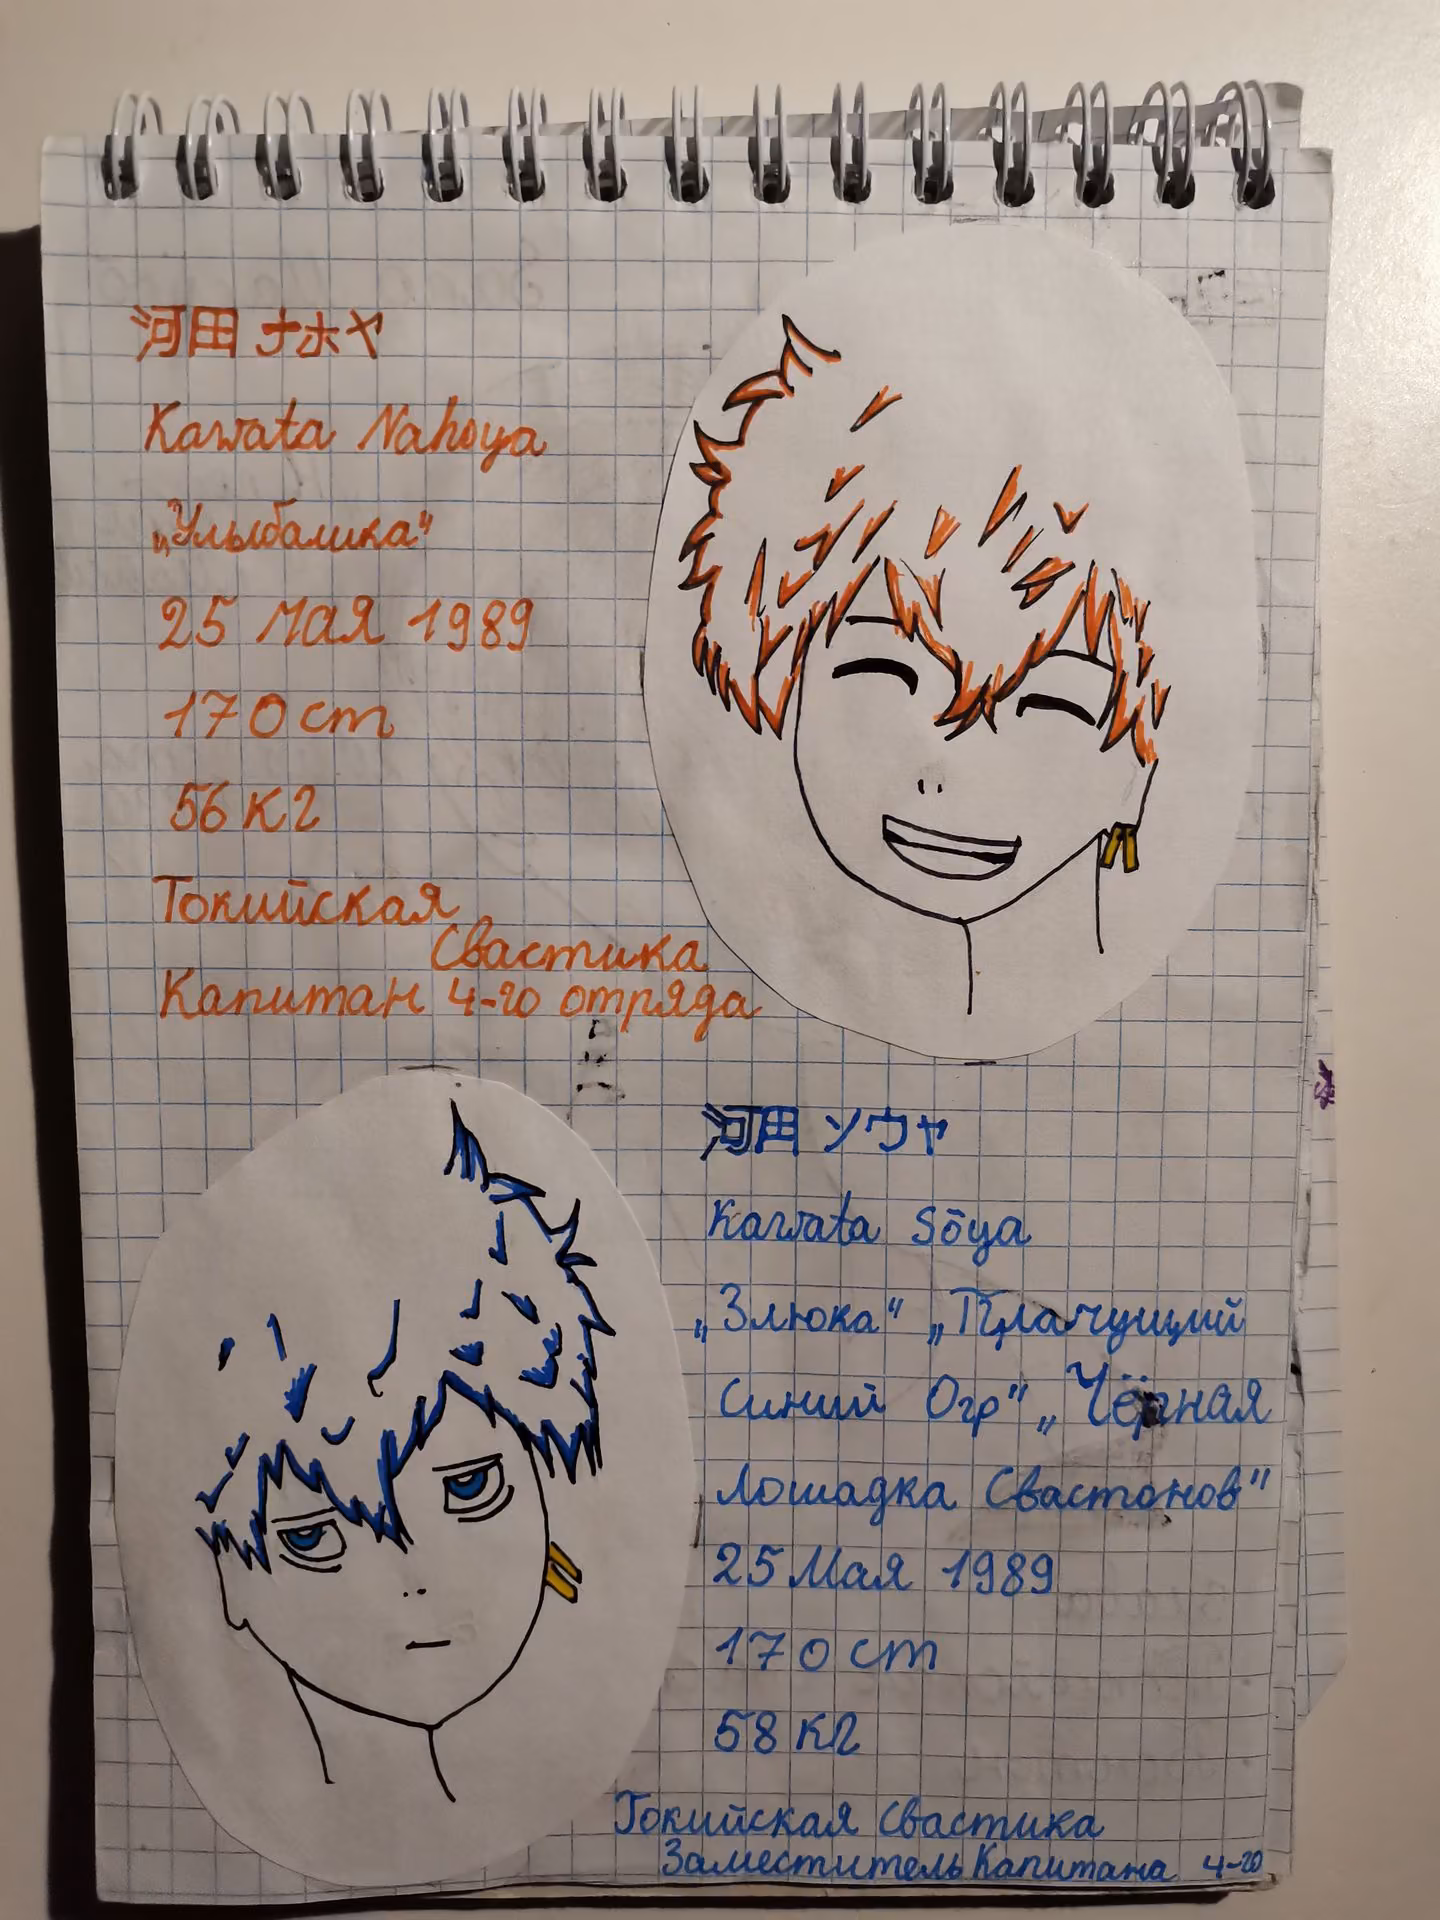 河田 ナホヤ
Kawata Nahoya
„Улыбашка“
25 Мая 1989
170 cm
56 кг
Токийская
Свастика
Капитан 4-го отряда
河田 ソウヤ
Kawata Sōya
„Злюка“ „Плачущий
Синий Огр“ „Чёрная
Лошадка Свастонов“
25 Мая 1989
170 cm
58 кг
Токийская Свастика
Заместитель Капитана 4-го